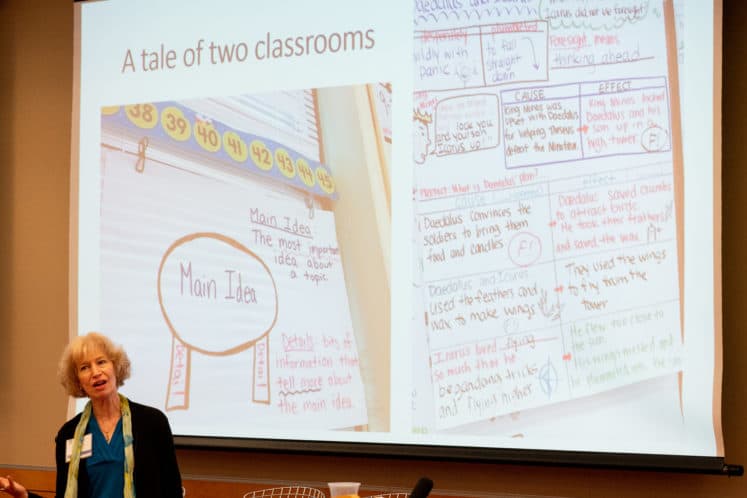 A tale of two classrooms
38 39 40 41 42 43 44 45
Main Idea
The most important
idea about
a topic.
Main Idea
Detail
Detail
Details: bits of
information that
tell more about
the main idea.
Daedalus and
Icarus did not use foresight
wildly with
panic
to fall
straight
down
Foresight means
thinking ahead
lock you
and your son
Icarus up!
CAUSE
EFFECT
King Minos was
upset with Daedalus
for helping Theseus
defeat the Minotaur
King Minos locked
Daedalus and his
son up in a
high tower.
What is Daedalus' plan?
Cause
Effect
Daedalus convinces the
soldiers to bring them
food and candles
Daedalus saved crumbs
to attract birds.
He took their feathers
and saved the wax.
Daedalus and Icarus
used the feathers and
wax to make wings
They used the wings
to fly from the
tower
Icarus loved flying
so much that he
began doing tricks
and flying higher
He flew too close to
the sun.
His wings melted and
he plummeted into the sea